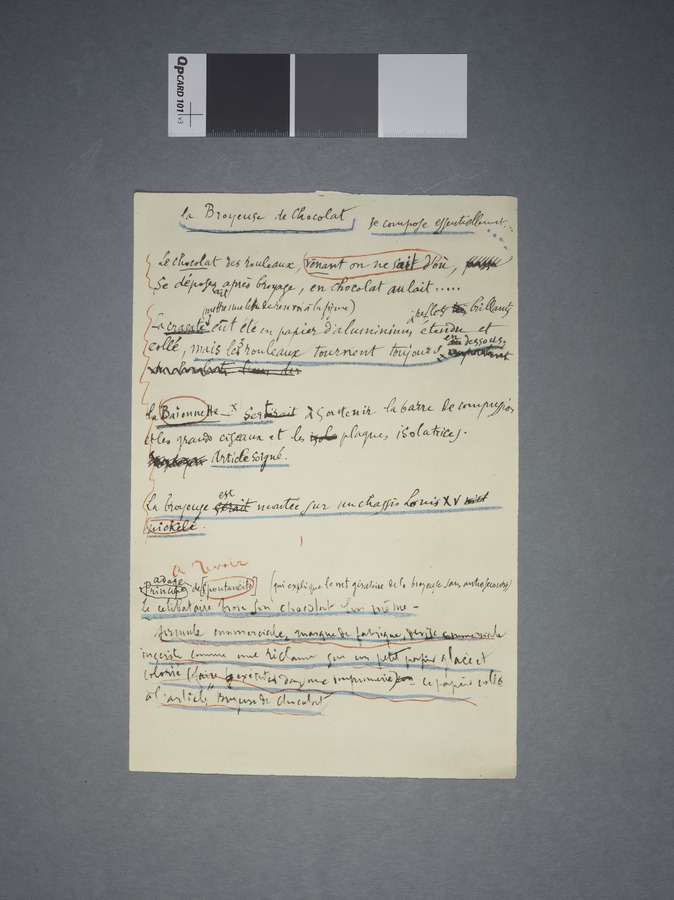 QPCARD 101 v3
la Broyeuse de Chocolat se compose essentiellement...
Le chocolat des rouleaux, venant on ne sait d'où,
se déposerait après broyage, en chocolat au lait.....
(mettre une lettre de renvoi à la figure)
à reflets brillants
La cravate eût été en papier d'aluminium étendu et
collé, mais les 3 rouleaux tournent toujours en dessous,
la Baïonnette x Sert à Soutenir la barre de compression
et les grands ciseaux et les plaques isolatrices.
Article soigné.
la broyeuse est montée sur un chassis Louis XV
nickelé.
a revoir
adage
Principe de [spontanéité] (qui explique le mt giratoire de la broyeuse sans autre secours)
Le célibataire broie son chocolat lui même -
formule commerciale, marque de fabrique, devise commerciale
inscrite comme une réclame sur un petit papier glacé et
colorié (faire exécuter dans une imprimerie) - ce papier collé
à l'article "Broyeuse de Chocolat"